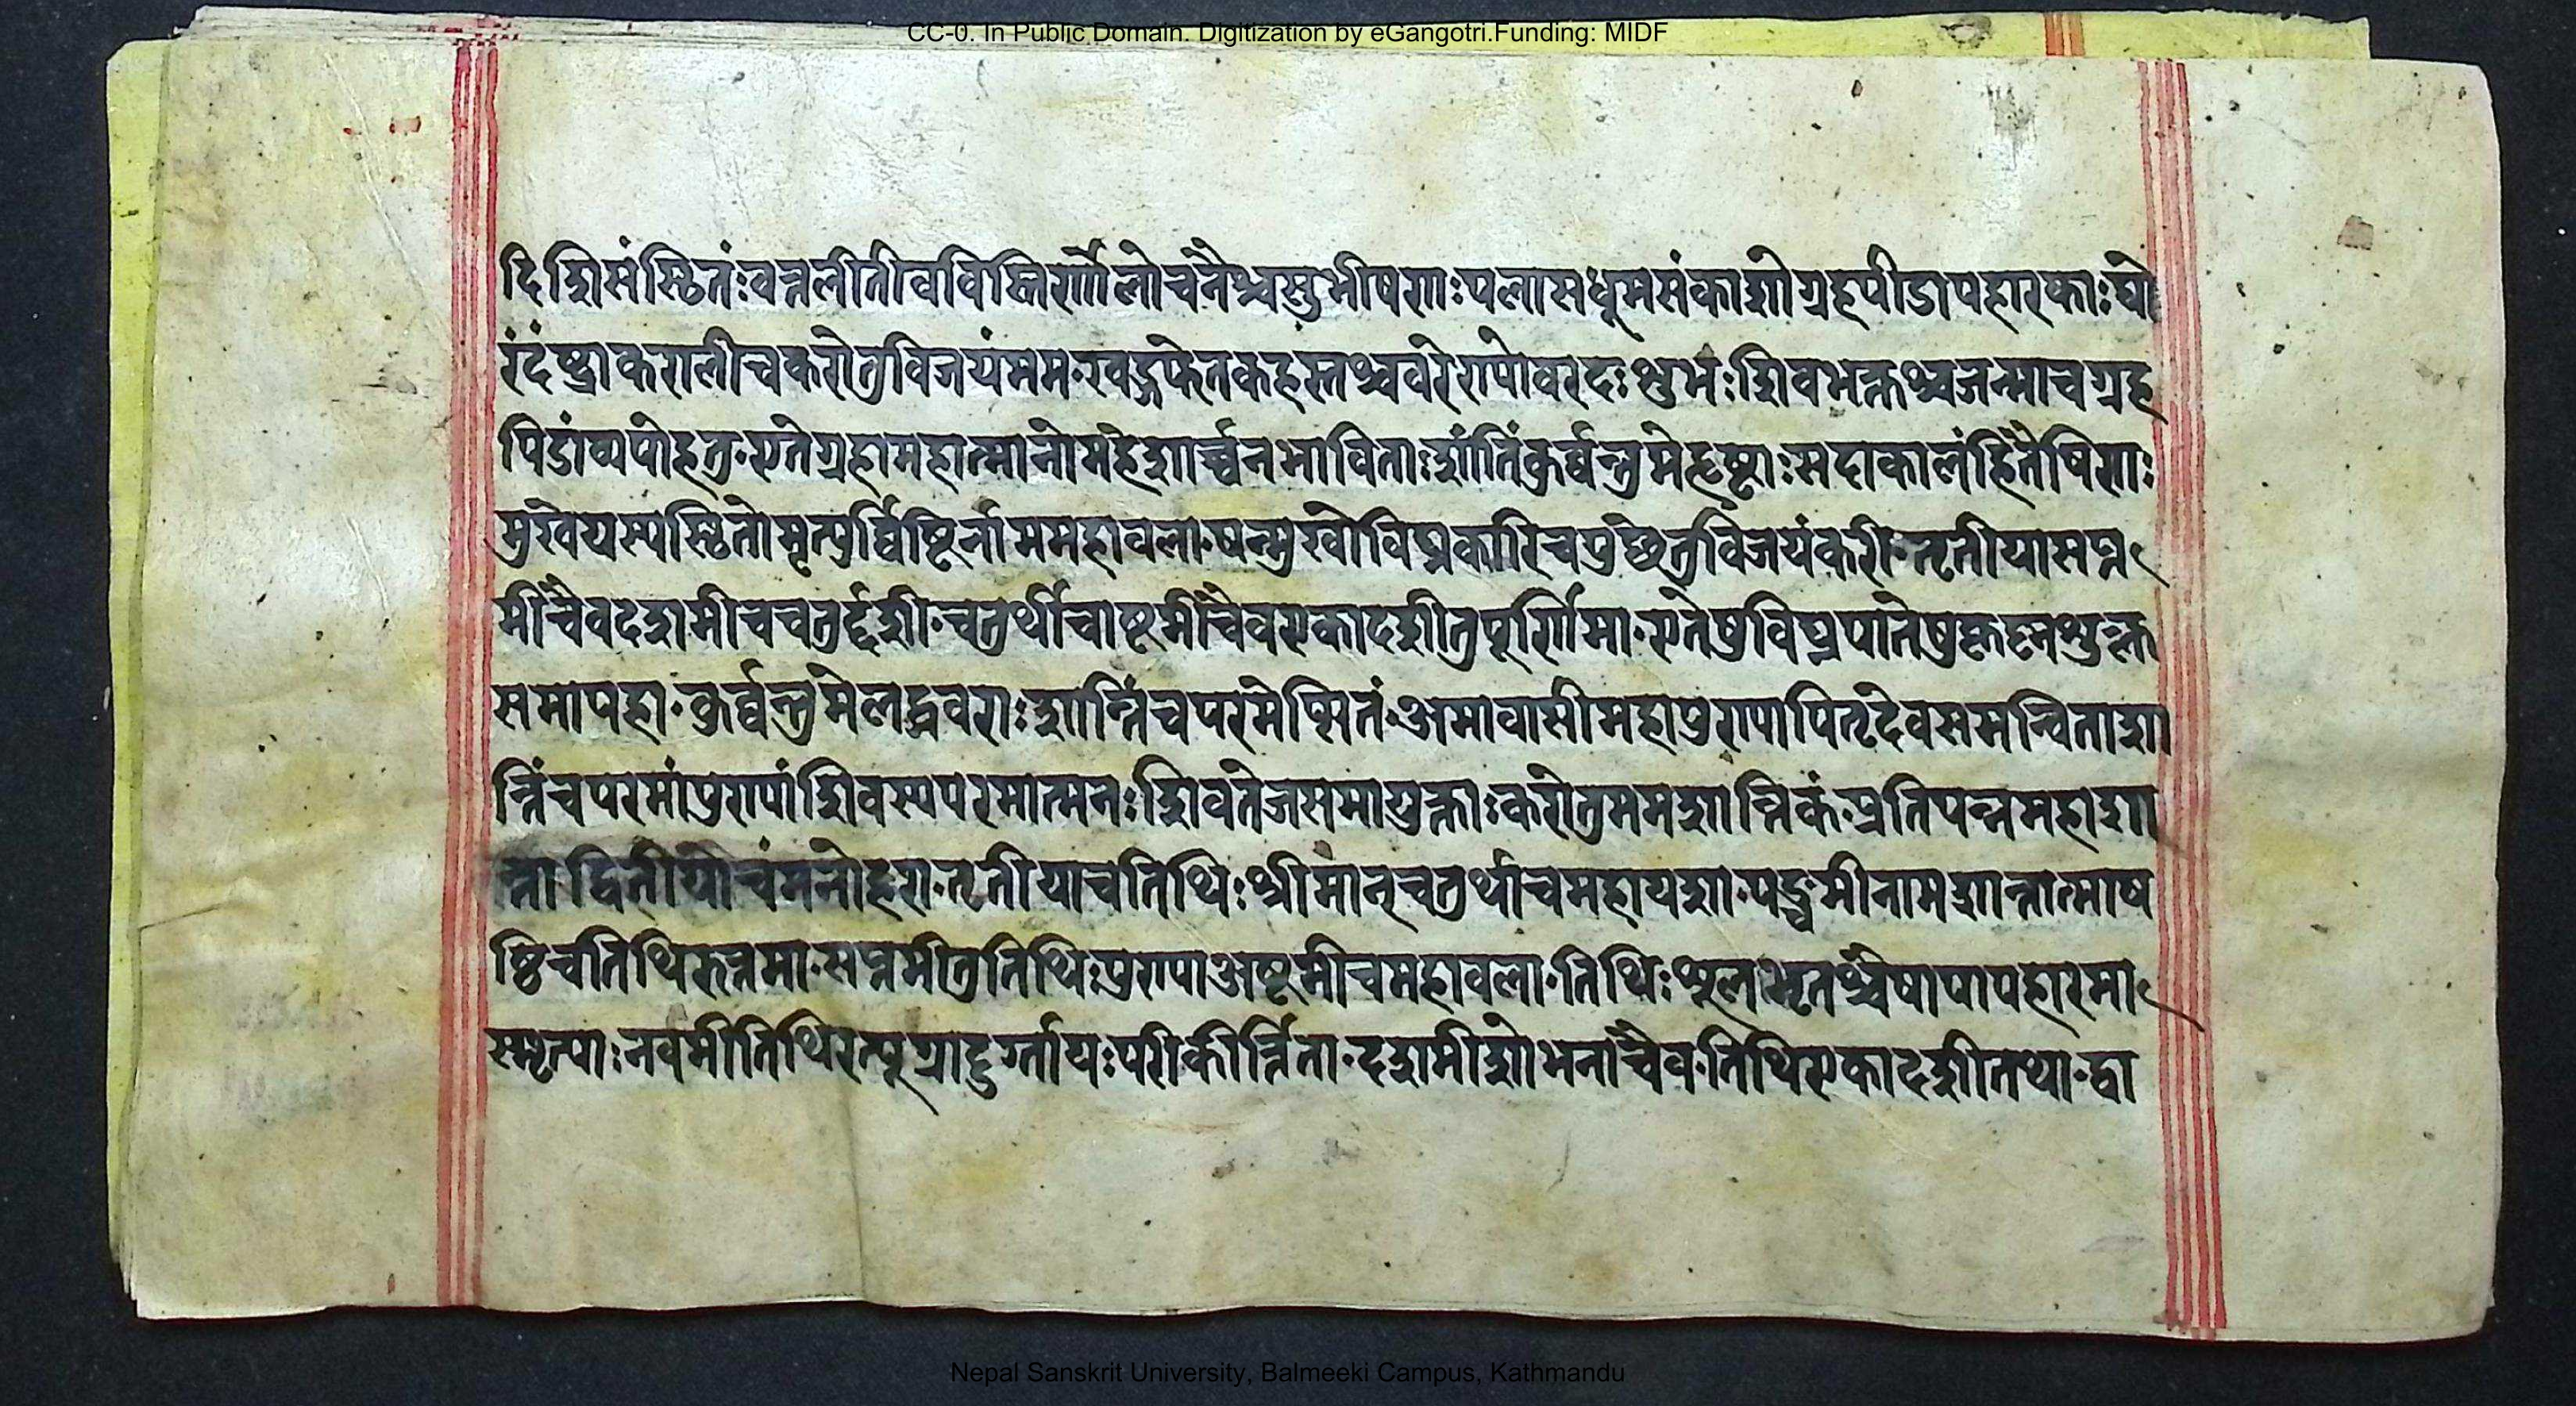 CC-0. In Public Domain. Digitization by eGangotri.Funding: MIDF
दिशिसंस्थितंःवत्तलीतीवविस्तिर्णोलोचनैश्चसुभीषणाःपलासधूमसंकाशोग्रहपीडापहारकाःघो
रंदंष्ट्राकरालीचकरोतुविजयंमम॰खड्गफेतकहस्तश्चवरेण्योवरदःशुभंःशिवभक्तश्चजन्माचग्रह
पिडांव्यपोहतु॰एतेग्रहामहात्मानोमहेशार्च्चनभाविताःशांतिंकुर्व्वन्तुमेहृष्टाःसदाकालंहितैषिणाः
मुखेयस्यस्थितोमृत्युर्व्विष्टिर्नाममहावला॰षन्मुखोविघ्नकारिचपुछेतुविजयंकरी॰तृतीयासप्त
मींचैवदशमीचचतुर्द्दशी॰चतुर्थीचाष्टमींचैवएकादशीतुपूर्णिमा॰एतेषुविघ्नपातेषु
समापहा॰कुर्व्वन्तुमेलद्ववराःशान्तिंचपरमेप्सितं॰अमावासीमहापुण्यापितृदेवसमन्विताशा
न्तिंचपरमांपुण्यांशिवस्यपरमात्मनःशिवतेजसमायुक्ताःकरोतुममशान्तिकं॰प्रतिपन्नमहाशा
न्ता द्वितीयाचंमनोहरा॰तृतीयाचतिथिःश्रीमान्चतुर्थीचमहायशा॰पञ्चमीनामशान्तात्माष
ष्ठिचतिथिरुत्तमा॰सप्तमीतुतिथिःपुण्याअष्टमीचमहावला॰तिथिःशूलभृतश्चैषापापहारमा
स्मृत्याःनवमीतिथिरत्पूग्रादुर्ग्तायःपरीकीर्त्तिता॰दशमीशोभनाचैव॰तिथिएकादशीतथा॰द्वा
Nepal Sanskrit University, Balmeeki Campus, Kathmandu